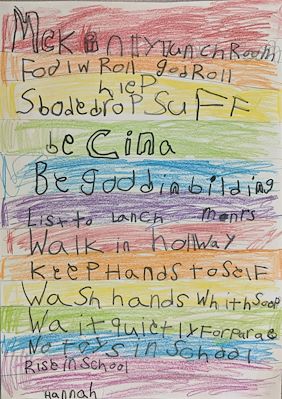 Mckinnlly Lunch Room
Fod lw Roll god Roll
hleP
Sbode drop Suff
be Cina
Be godd in bilding
List to Lanch moners
Walk in hollway
KeeP Hands to Self
Wash hands whith Soop
Wait quietly For Para
No toys in School
Rise in School
Hannah